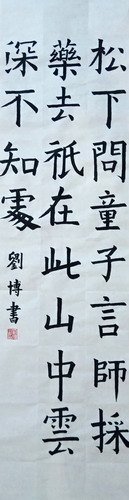 松下問童子言師採
藥去祇在此山中雲
深不知處
劉博書